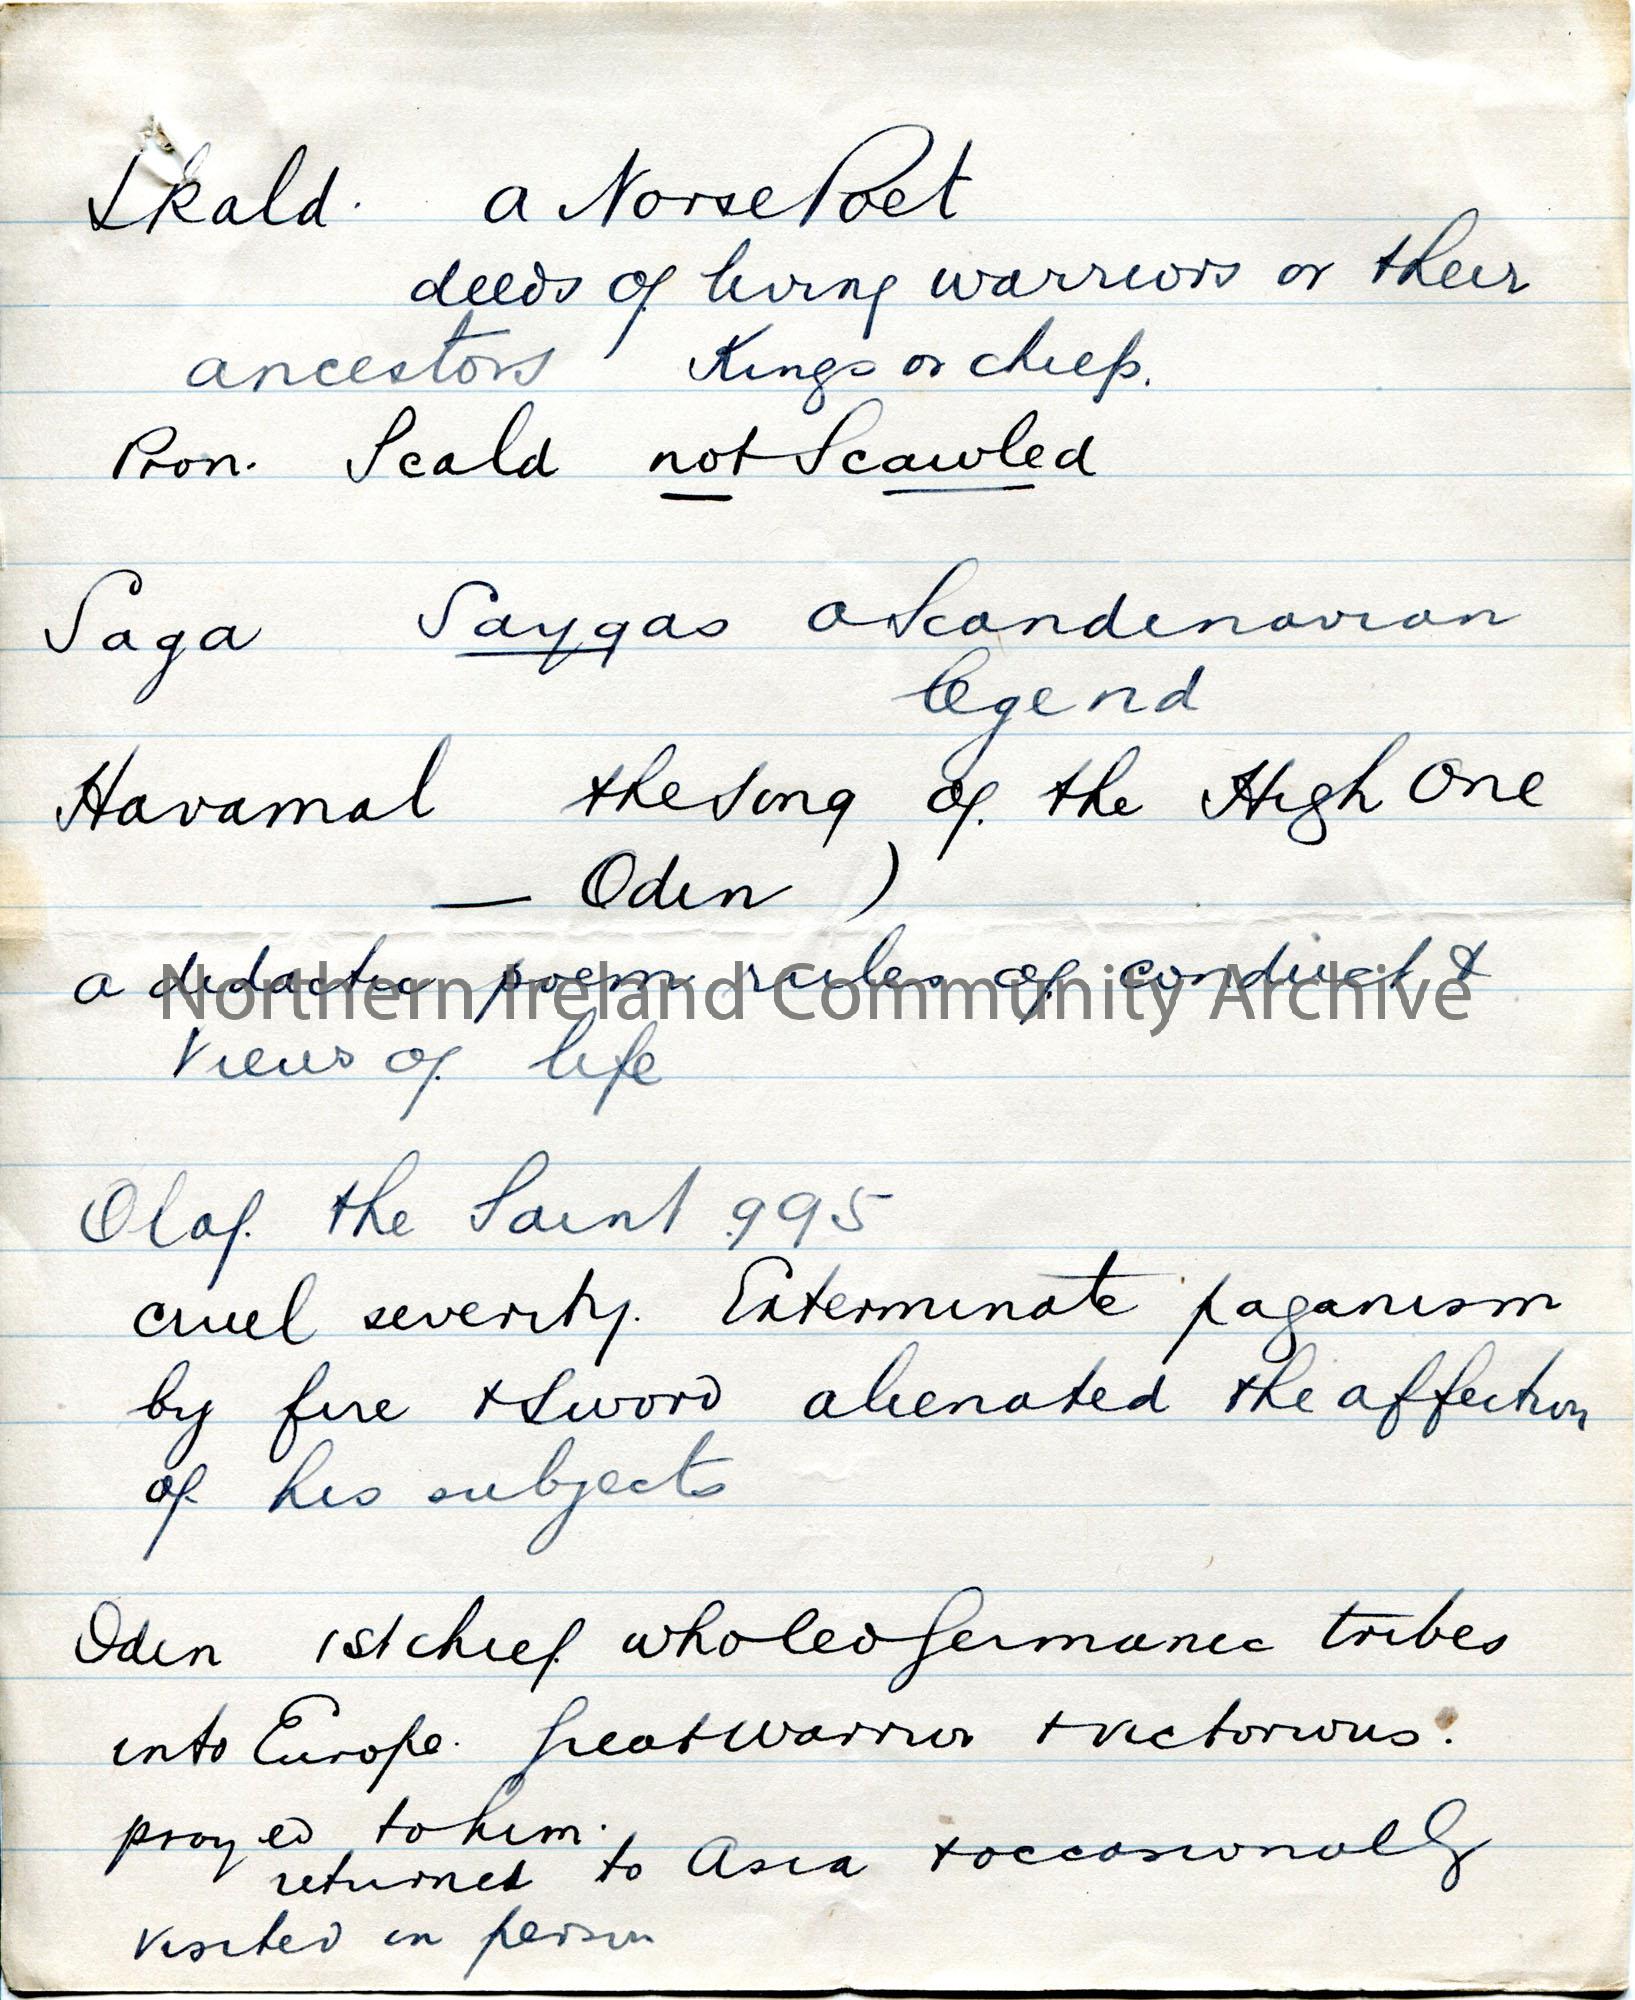 Skald. a Norse Poet
deeds of living warriors or their
ancestors Kings or chiefs.
Pron. Scald not Scawled
Saga Saygas a Scandinavian
legend
Havamal the Song of the High One
— Odin )
a didactic poem rules of conduct &
Views of life
Northern Ireland Community Archive
Olaf the Saint 995
cruel severity. Exterminate paganism
by fire + Sword alienated the affection
of his subjects
Odin 1st chief who led Germanic tribes
into Europe. Great Warrior + victorious.
prayed to him.
returned to Asia + occasionally
visited in person